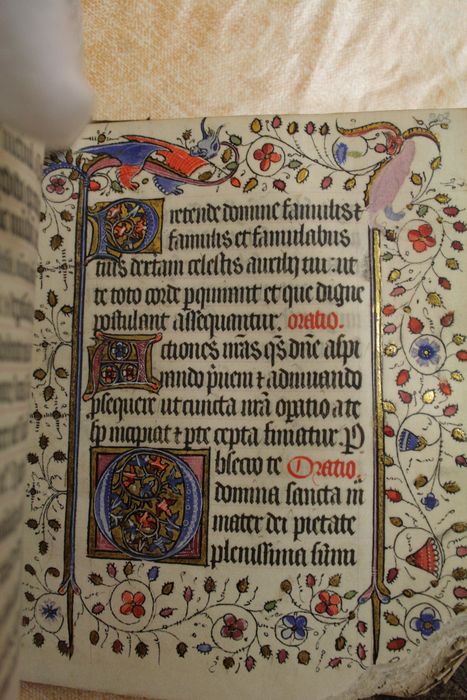 Pretende domine famulis ⁊
famulis et famulabus
tuis dextam celestis auxilij tui: ut
te toto corde pquirant et que digne
postulant assequantur. oratio.
Actiones nr̄as qs̄ dn̄e aspi
rando p̄ueni ⁊ adiuuando
psequere ut cuncta nr̄a opatio a te
sp̄ incipiat ⁊ p te cepta finiatur. P
Obsecro te Oratio.
domina sancta m
mater dei pietate
plenissima sum̄i